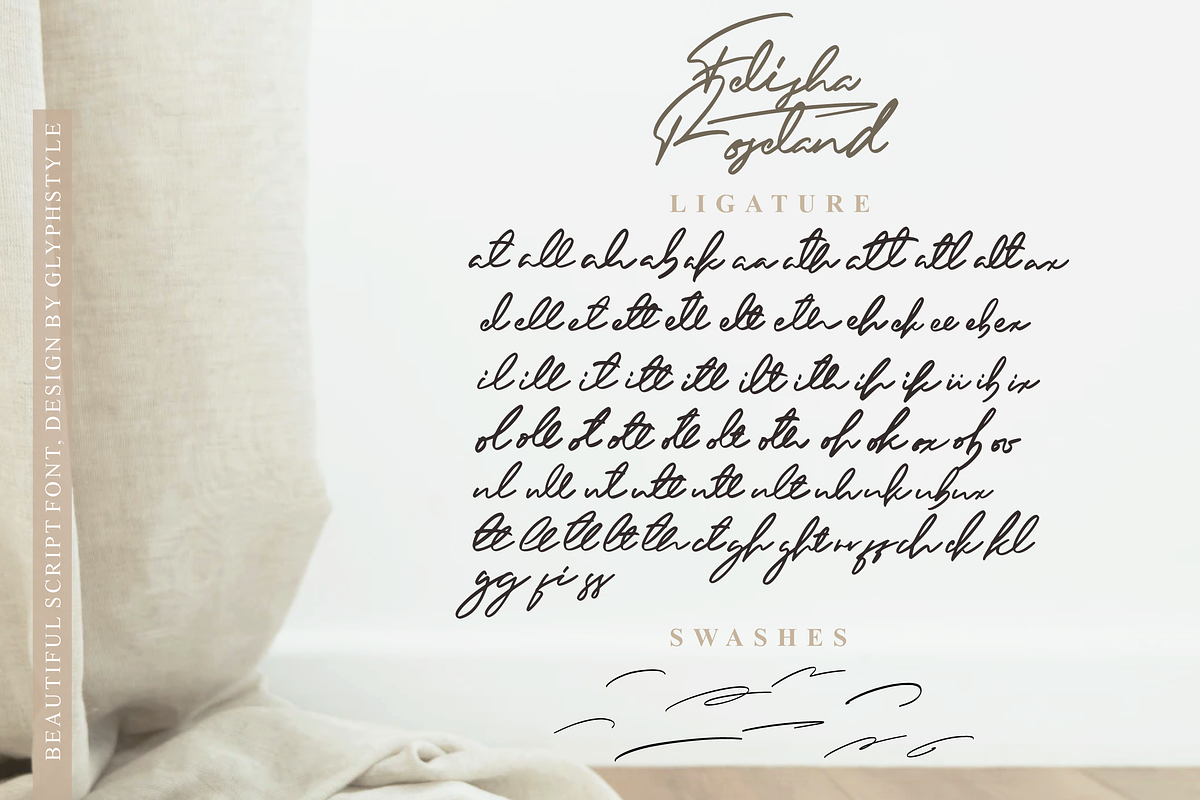 Felisha
Roseland
LIGATURE
at all ah ab ak aa ath att atl alt ax
el ell et ett etl elt eth eh ek ee eb ex
il ill it itt itl ilt ith ih ik ii ib ix
ol oll ot ott otl olt oth oh ok ox ob oo
ul ull ut utt utl ult uh uk ub ux
tt ll tl lt th ct gh ght rr ff ch ck kl
gg fi ss
SWASHES
BEAUTIFUL SCRIPT FONT, DESIGN BY GLYPHSTYLE